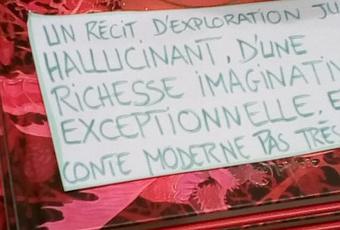 UN RÉCIT D'EXPLORATION JU
HALLUCINANT, D'UNE
RICHESSE IMAGINATIV
EXCEPTIONNELLE. E
CONTE MODERNE PAS TRÈS